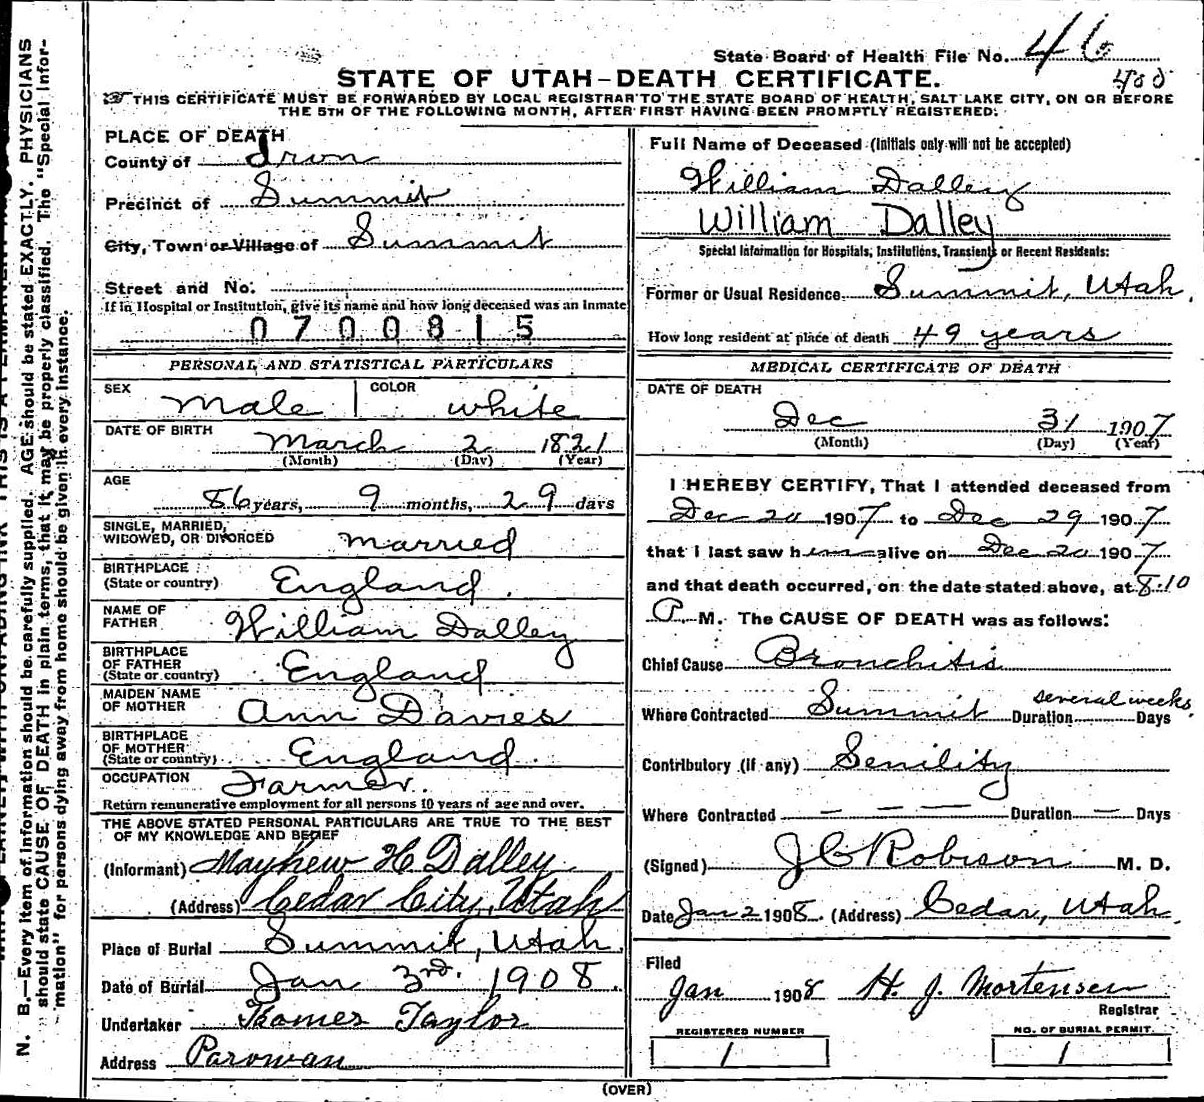 State Board of Health File No. 46
STATE OF UTAH-DEATH CERTIFICATE. 400
THIS CERTIFICATE MUST BE FORWARDED BY LOCAL REGISTRAR TO THE STATE BOARD OF HEALTH, SALT LAKE CITY, ON OR BEFORE
THE 5TH OF THE FOLLOWING MONTH, AFTER FIRST HAVING BEEN PROMPTLY REGISTERED.
PLACE OF DEATH
County of Iron
Precinct of Summit
City, Town or Village of Summit
Street and No.
If in Hospital or Institution, give its name and how long deceased was an Inmate
0700815
PERSONAL AND STATISTICAL PARTICULARS
SEX Male COLOR white
DATE OF BIRTH March 2 1821
(Month) (Day) (Year)
AGE
86 years, 9 months, 29 days
SINGLE, MARRIED,
WIDOWED, OR DIVORCED married
BIRTHPLACE
(State or country) England.
NAME OF
FATHER William Dalley
BIRTHPLACE
OF FATHER
(State or country) England
MAIDEN NAME
OF MOTHER Ann Davies
BIRTHPLACE
OF MOTHER
(State or country) England.
OCCUPATION Farmer.
Return remunerative employment for all persons 10 years of age and over.
THE ABOVE STATED PERSONAL PARTICULARS ARE TRUE TO THE BEST
OF MY KNOWLEDGE AND BELIEF
(Informant) Mayhew H. Dalley
(Address) Cedar City, Utah
Place of Burial Summit, Utah.
Date of Burial Jan 3rd. 1908.
Undertaker Thomas Taylor
Address Parowan
Full Name of Deceased (Initials only will not be accepted)
William Dalley
William Dalley
Special Information for Hospitals, Institutions, Transients or Recent Residents:
Former or Usual Residence Summit, Utah.
How long resident at place of death 49 years
MEDICAL CERTIFICATE OF DEATH
DATE OF DEATH
Dec 31 1907
(Month) (Day) (Year)
I HEREBY CERTIFY, That I attended deceased from
Dec 20 1907 to Dec 29 1907
that I last saw him alive on Dec 20 1907
and that death occurred, on the date stated above, at 8:10
P. M. The CAUSE OF DEATH was as follows:
Chief Cause Bronchitis
Where Contracted Summit Duration several weeks Days
Contributory (if any) Senility
Where Contracted — — — Duration — Days
(Signed) J C Robison M. D.
Date Jan 2 1908. (Address) Cedar, Utah.
Filed
Jan 1908 H. J. Mortensen
Registrar
REGISTERED NUMBER
1
NO. OF BURIAL PERMIT.
1
(OVER)
N. B.—Every item of information should be carefully supplied. AGE should be stated EXACTLY. PHYSICIANS
should state CAUSE OF DEATH in plain terms, that it may be properly classified. The "Special Infor-
mation" for persons dying away from home should be given in every instance.